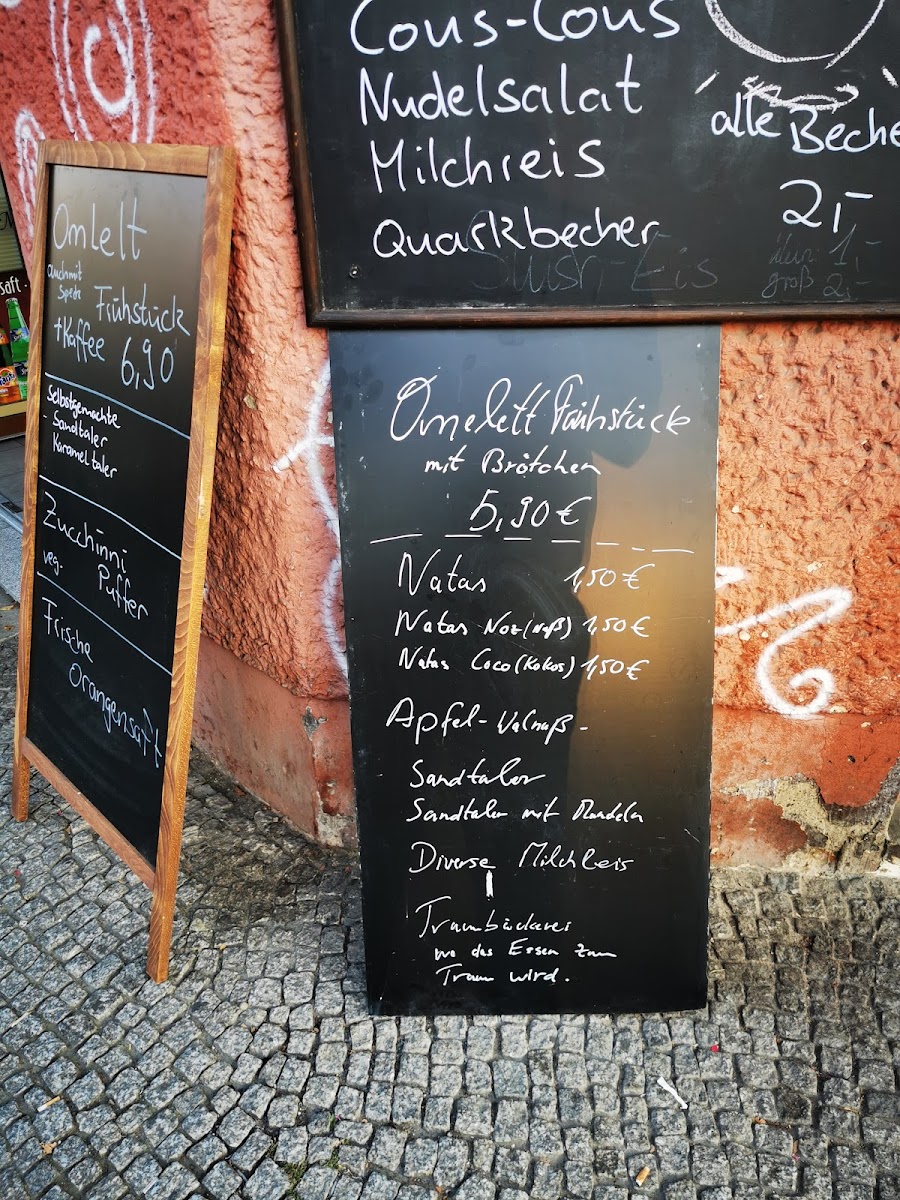 Cous-Cous
Nudelsalat
Milchreis
Quarkbecher
alle Beche
2,-
Slush-Eis
klein 1,-
groß 2,-
Omlelt
auch mit
Speck
Frühstück
+Kaffee 6,90
Selbstgemachte
- Sandtaler
Karameltaler
Zucchinni
veg. Puffer
Frische
Orangensaft
saft.
Omelett Frühstück
mit Brötchen
5,90€
Natas 1,50€
Natas Noz (Nuß) 1,50€
Natas Coco (Kokos) 1,50€
Apfel-Walnuß-
Sandtaler
Sandtaler mit Mandeln
Diverse Milchreis
Traumbäckerei
wo das Essen zum
Traum wird.